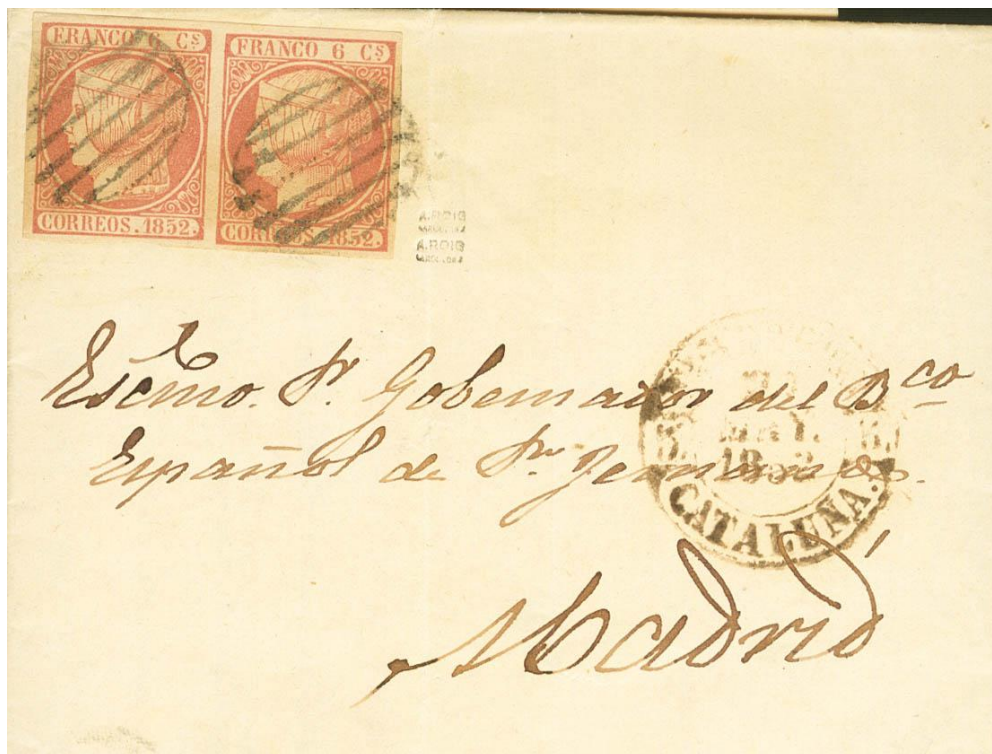 FRANCO 6 Cs FRANCO 6 Cs
CORREOS. 1852. CORREOS. 1852.
A. ROIG
A. ROIG
Escmo. Sr. Gobernador del Bco
Español de Sn. Fernando.
MAY.
185
CATALUÑA.
Madrid